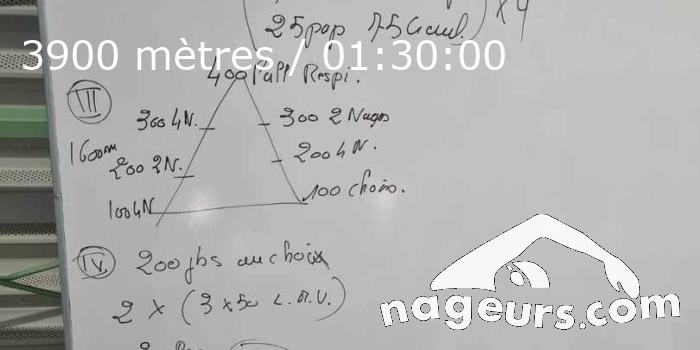 25 pop 75 Crawl.) x 4
3900 mètres / 01:30:00
400 Respi.
III
300 4N.
300 2 Nages
1600m
200 2N.
200 4N.
100 4N
100 choix.
IV.
200 jbs au choix
2 x (3 x 50
nageurs.com